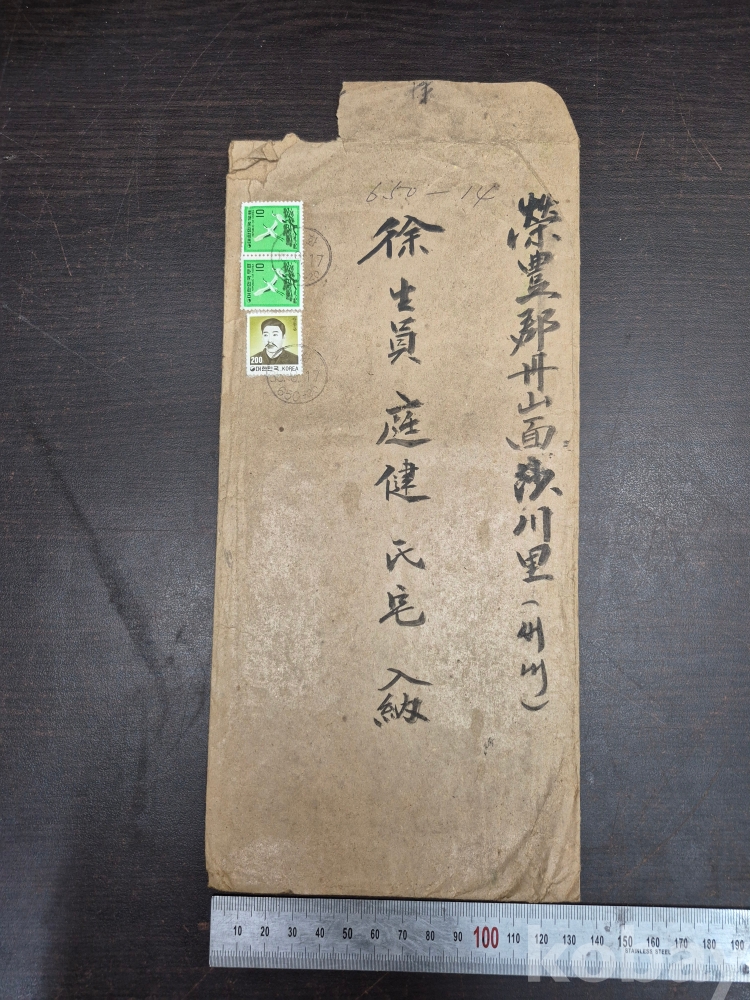 榮豊郡丹山面沙川里
650-14
徐生員 庭健 氏宅 入納
10
10
200
대한민국 KOREA
650
10 20 30 40 50 60 70 80 90 100 110 120 130 140 150 160 170 180 190
STAINLESS STEEL
kobay